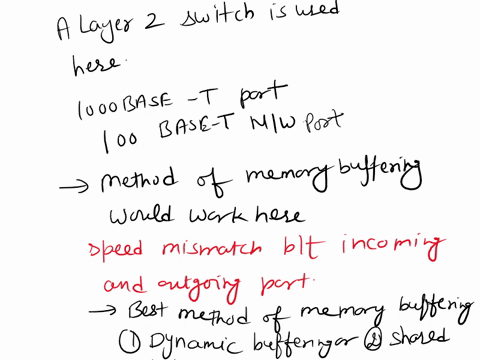 A Layer 2 switch is used
here.
1000BASE -T port
100 BASE-T N/W Port
→ method of memory buffering
would work here
speed mismatch b/t incoming
and outgoing port.
→ Best method of memory buffering
① Dynamic buffering or ② shared